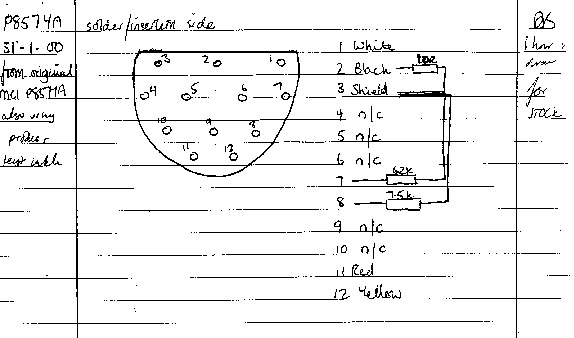 P8574A
31-1-00
from original
MCI P8574A
also using
test cable
solder/insertion side
3 2 1
4 5 6 7
10 9 8
11 12
1 White
2 Black 10k
3 Shield
4 n/c
5 n/c
6 n/c
7 62k
8 7.5k
9 n/c
10 n/c
11 Red
12 Yellow
for
stock